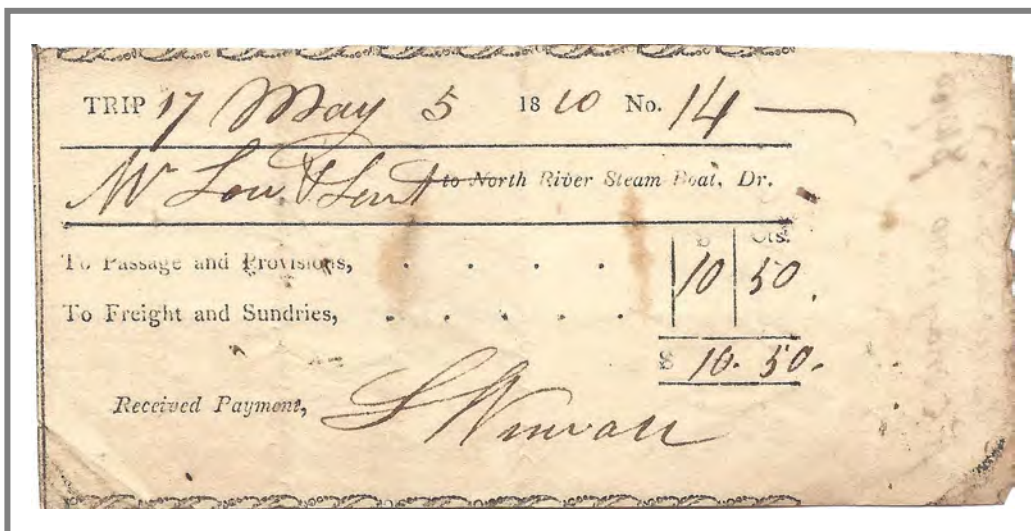 TRIP 17 May 5 1810 No. 14
Mr Low & Lent to North River Steam Boat, Dr.
$ Cts.
To Passage and Provisions, . . . . 10 50
To Freight and Sundries, . . . . .
$ 10. 50.
Received Payment, S Wiswall